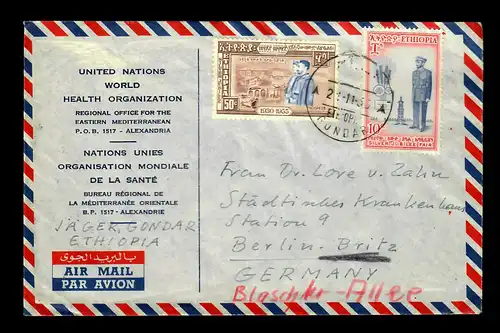 UNITED NATIONS
WORLD
HEALTH ORGANIZATION
REGIONAL OFFICE FOR THE
EASTERN MEDITERRANEAN
P.O.B. 1517 - ALEXANDRIA
NATIONS UNIES
ORGANISATION MONDIALE
DE LA SANTÉ
BUREAU RÉGIONAL DE
LA MÉDITERRANÉE ORIENTALE
B.P. 1517 - ALEXANDRIE
JÄGER, GONDAR
ETHIOPIA
بالبريد الجوى
AIR MAIL
PAR AVION
ETHIOPIA
50c
1930-1955
ETHIOPIA
10
SILVER JUBILEE FAIR
GONDAR
Frau Dr. Love v. Zahn
Städtisches Krankenhaus
Station 9
Berlin-Britz
GERMANY
Blaschko-Allee